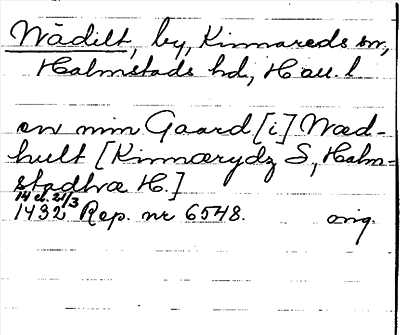 Wådilt, by, Kinnareds sn,
Halmstads hd, Hall. l
en min Gaard [i] Wad-
hult [Kinnærydz S, Halm-
stadhæ H.]
14 el. 21/3
1432 Rep. nr 6548. orig.